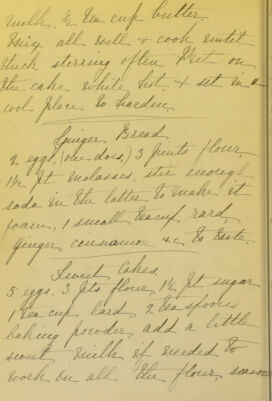 milk, ½ tea cup butter.
Mix all well & cook until
thick stirring often. Put on
the cake while hot, & set in a
cool place to harden.
Ginger Bread
2 eggs, (one does,) 3 pints flour
1½ pt molasses, stir enough
soda in the latter to make it
foam, 1 small teacup lard,
ginger, cinnamon &c to taste.
Sweet Cakes.
5 eggs, 3 pts flour, 1½ pt sugar
1 tea cup lard, 2 teaspoons
baking powder, add a little
sweet milk if needed to
work in all the flour, season